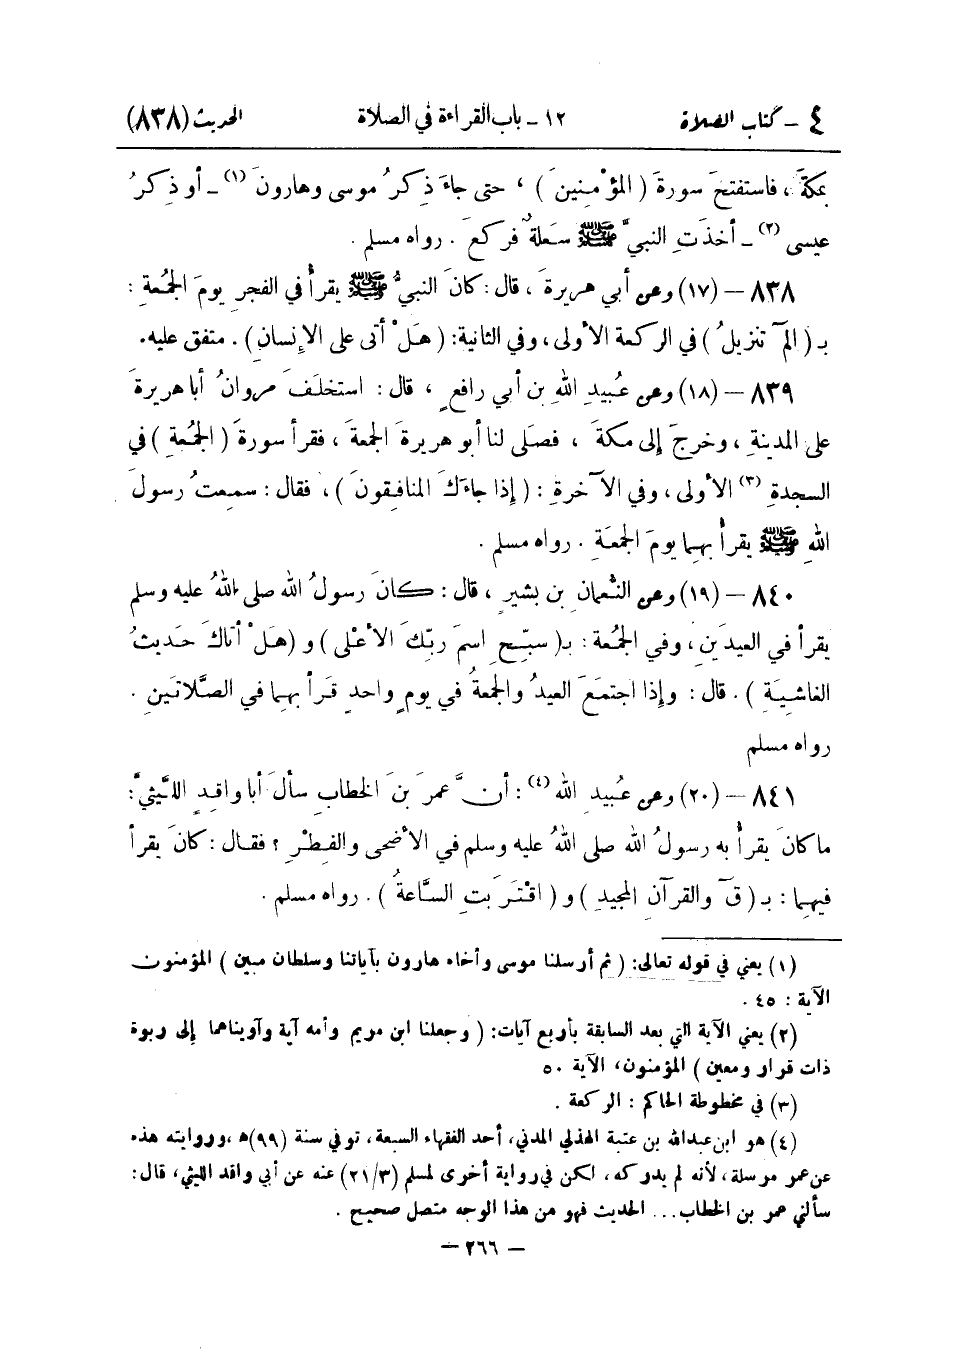 ٤ - كتاب الصلاة ١٢ - باب القراءة في الصلاة الحديث (٨٣٨)
بمكةَ ، فاستفتحَ سورةَ ( المؤْمنينَ ) ، حتى جاءَ ذِكرُ موسى وهارونَ (١) - أو ذِكرُ
عيسى (٢) - أخذَتِ النبيَّ ﷺ سَعلةٌ فركعَ . رواه مسلم .
٨٣٨ - (١٧) وعن أبي هريرةَ ، قال : كانَ النبيُّ ﷺ يقرأُ في الفجرِ يومَ الجُمُعةِ :
بـ ( الم~ تنزيلُ ) في الركعة الأولى ، وفي الثانية : ( هَلْ أتى على الإنسانِ ) . متفق عليه .
٨٣٩ - (١٨) وعن عُبيدِ اللهِ بن أبي رافعٍ ، قال : استخلَفَ مروانُ أبا هريرةَ
على المدينةِ ، وخرجَ إلى مكةَ ، فصلَى لنا أبو هريرةَ الجمعةَ ، فقرأ سورةَ ( الجُمُعةِ ) في
السجدةِ (٣) الأولى ، وفي الآخرةِ : ( إذا جاءَكَ المنافِقونَ ) ، فقال : سمِعتُ رسولَ
اللهِ ﷺ يقرأُ بهِما يومَ الجمُعَةِ . رواه مسلم .
٨٤٠ - (١٩) وعن النُّعمانِ بن بشيرٍ ، قال : كانَ رسولُ الله صلى اللهُ عليه وسلم
يقرأ في العيدَينِ ، وفي الجُمُعة : بـ( سبِّحِ اسمَ ربِّكَ الأعْلى ) و ( هَلْ أتاكَ حَديثُ
الغاشِيَةِ ) . قال : وإذا اجتمَعَ العيدُ والجمعةُ في يومٍ واحدٍ قرَأ بهِما في الصَّلاتَينِ .
رواه مسلم
٨٤١ - (٢٠) وعن عُبيدِ الله (٤) : أنَّ عمرَ بنَ الخطابِ سألَ أبا واقدٍ اللَّيثيَّ :
ما كانَ يقرأُ به رسولُ الله صلى اللهُ عليه وسلم في الأضحى والفِطْرِ ؟ فقال : كانَ يقرأُ
فيهِما : بـ ( قَ~ والقرآنِ المجيدِ ) و ( اقْتَرَبتِ السَّاعةُ ) . رواه مسلم .
(١) يعني في قوله تعالى : ( ثم أرسلنا موسى وأخاه هارون بآياتنا وسلطان مبين ) المؤمنون
الآية : ٤٥ .
(٢) يعني الآية التي بعد السابقة بأربع آيات : ( وجعلنا ابن مريم وأمه آية وآويناهما إلى ربوة
ذات قرار ومعين ) المؤمنون ، الآية ٥٠
(٣) في مخطوطة الحاكم : الركعة .
(٤) هو ابن عبدالله بن عتبة الهذلي المدني ، أحد الفقهاء السبعة ، توفي سنة (٩٩)هـ ، وروايته هذه
عن عمر مرسلة ، لأنه لم يدركه ، لكن في رواية أخرى لمسلم (٢١/٣) عنه عن أبي واقد الليثي ، قال :
سألني عمر بن الخطاب ... الحديث فهو من هذا الوجه متصل صحيح .
- ٢٦٦ -